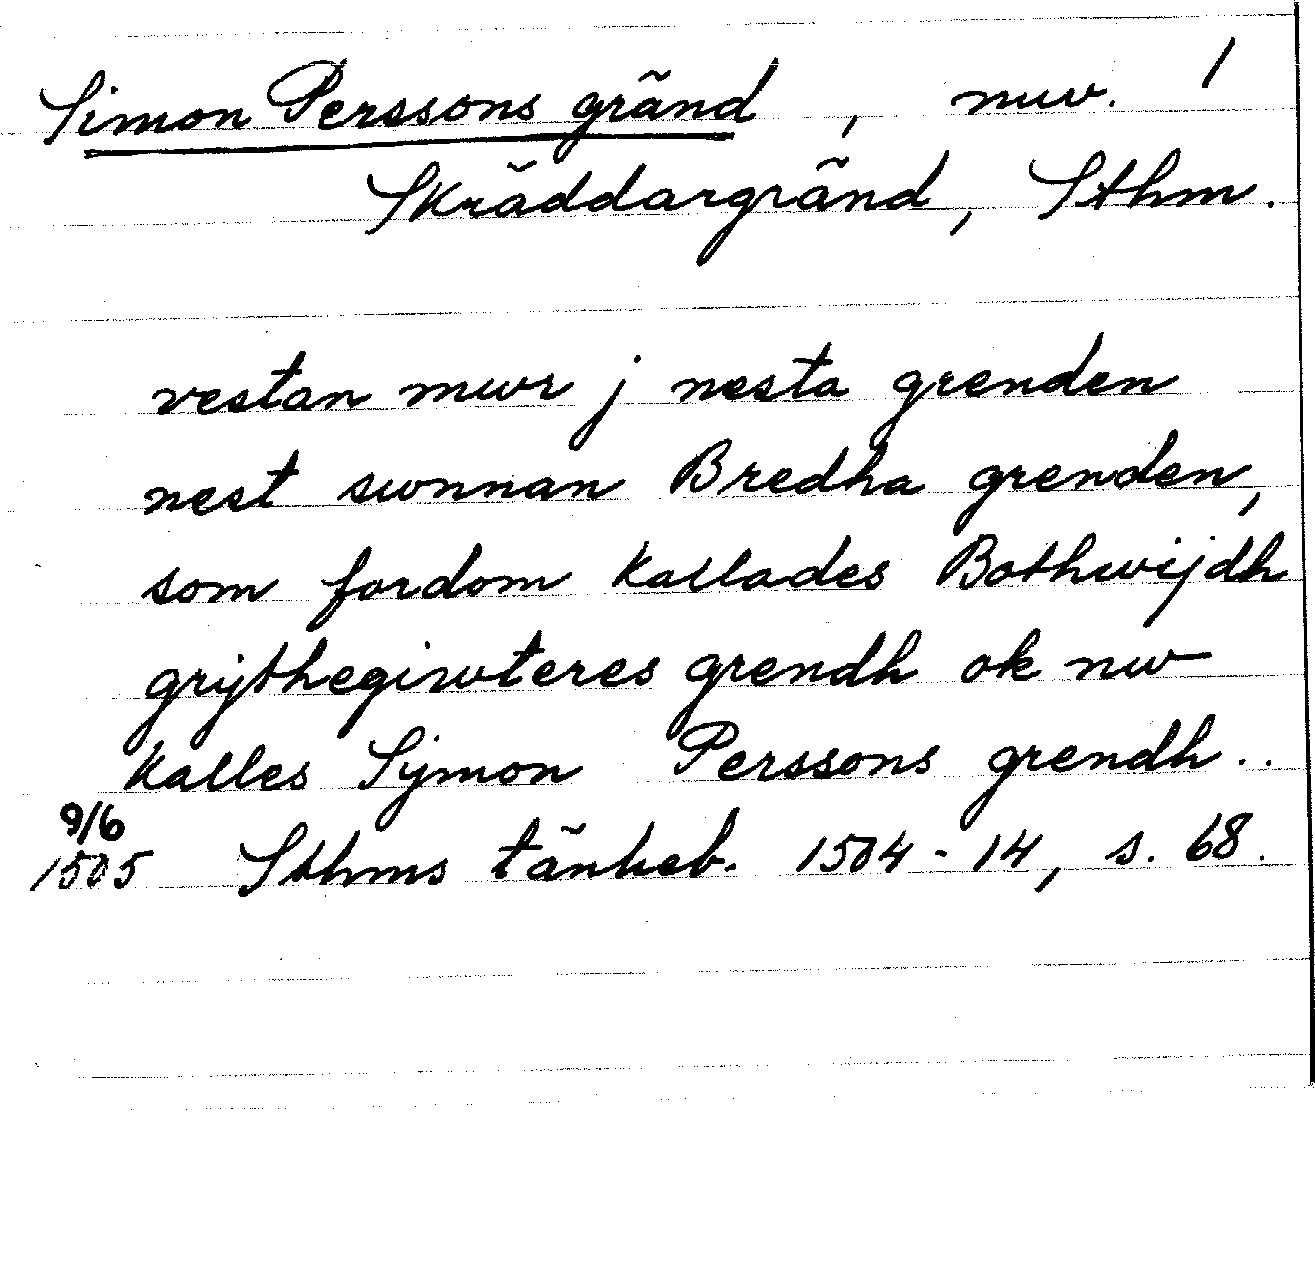 Simon Perssons gränd, nuv. 1
Skräddargränd, Sthm.
vestan mwr j nesta grenden
nest swnnan Bredha grenden,
som fordom kallades Bothwijdh
grijthegiwteres grendh ok nw
kalles Symon Perssons grendh..
9/6
1505 Sthms tänkeb. 1504-14, s. 68.